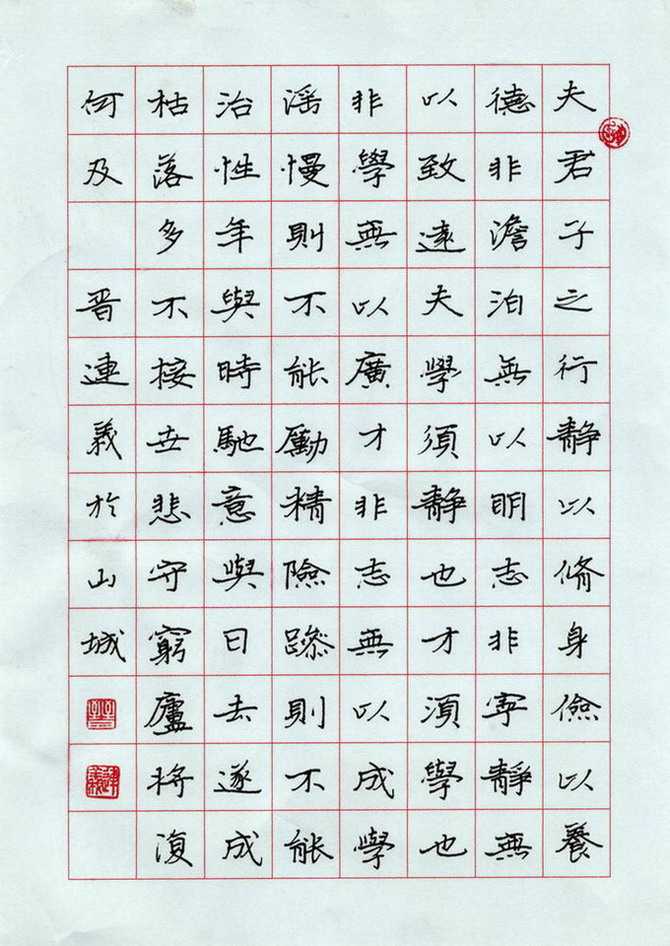 夫君子之行靜以修身儉以養
德非澹泊無以明志非寧靜無
以致遠夫學須靜也才須學也
非學無以廣才非志無以成學
滛慢則不能勵精險躁則不能
治性年與時馳意與日去遂成
枯落多不接世悲守窮廬將復
何及
晋連義於山城